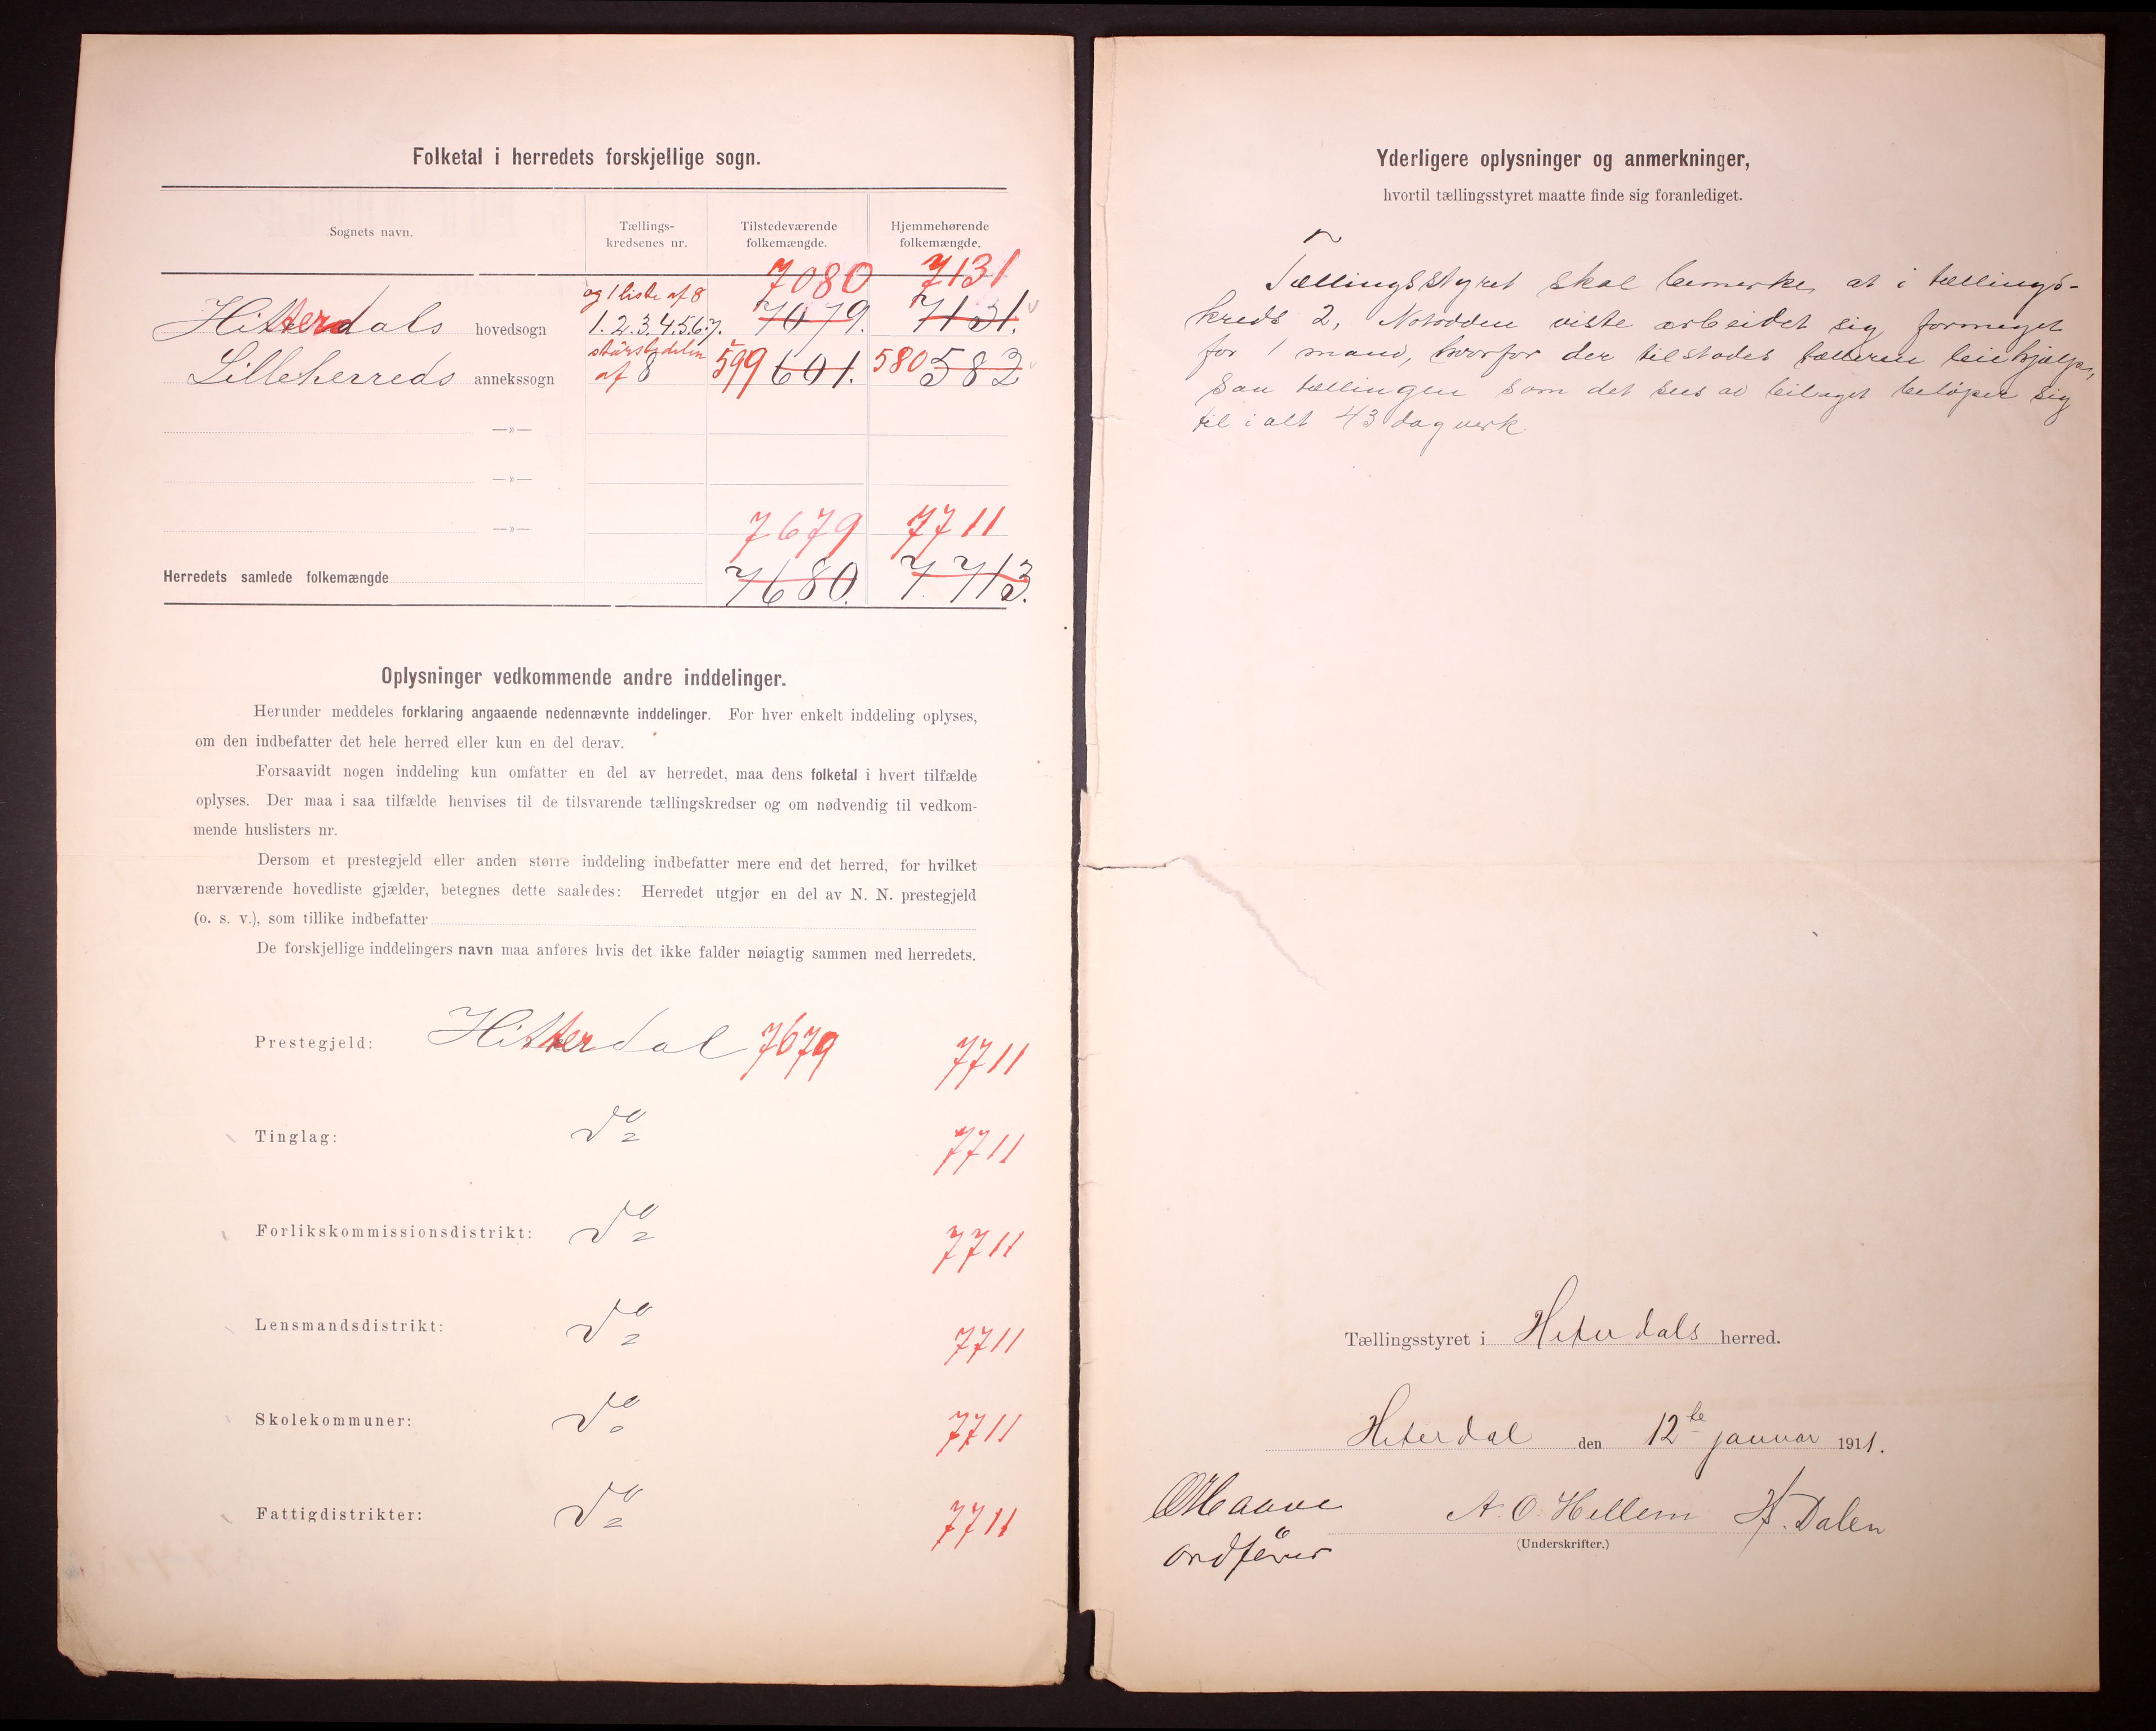 Folketal i herredets forskjellige sogn.
Sognets navn.
Tællings-
kredsenes nr.
Tilstedeværende
folkemængde.
Hjemmehørende
folkemængde.
7080 7131
og 1 liste af 8
Hitterdals hovedsogn 1.2.3.4.5.6.7. 7079. 7131.
størstedelen
Lilleherreds annekssogn af 8 599 601. 580 583
—»—
—»—
—»—
7679 7711
Herredets samlede folkemængde 7680. 7.713.
Oplysninger vedkommende andre inddelinger.
Herunder meddeles forklaring angaaende nedennævnte inddelinger. For hver enkelt inddeling oplyses,
om den indbefatter det hele herred eller kun en del derav.
Forsaavidt nogen inddeling kun omfatter en del av herredet, maa dens folketal i hvert tilfælde
oplyses. Der maa i saa tilfælde henvises til de tilsvarende tællingskredser og om nødvendig til vedkom-
mende huslisters nr.
Dersom et prestegjeld eller anden større inddeling indbefatter mere end det herred, for hvilket
nærværende hovedliste gjælder, betegnes dette saaledes: Herredet utgjør en del av N. N. prestegjeld
(o. s. v.), som tillike indbefatter
De forskjellige inddelingers navn maa anføres hvis det ikke falder nøiagtig sammen med herredets.
Prestegjeld: Hitterdal 7679 7711
Tinglag: do 7711
Forlikskommissionsdistrikt: do 7711
Lensmandsdistrikt: do 7711
Skolekommuner: do 7711
Fattigdistrikter: do 7711
Yderligere oplysninger og anmerkninger,
hvortil tællingsstyret maatte finde sig foranlediget.
Tællingsstyret skal bemerke, at i tællings-
kreds 2, Notodden viste arbeidet sig formeget
for 1 mand, hvorfor der tilstodes tælleren leiehjælp,
saa tællingen som det sees av bilaget beløper sig
til i alt 43 dagverk
Tællingsstyret i Hiterdals herred.
Hiterdal den 12te januar 1911.
A. O. Hellem H. Dalen
(Underskrifter.)
ordfører